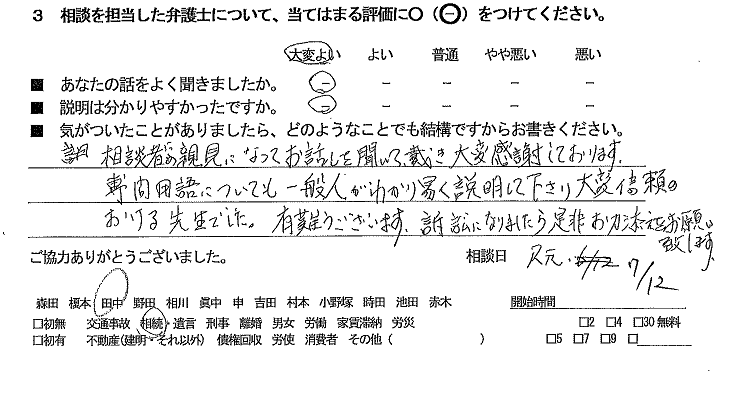 3 相談を担当した弁護士について、当てはまる評価に○（㊀）をつけてください。
大変よい よい 普通 やや悪い 悪い
■ あなたの話をよく聞きましたか。 － － － － －
■ 説明は分かりやすかったですか。 － － － － －
■ 気がついたことがありましたら、どのようなことでも結構ですからお書きください。
相談者の親見になってお話しを聞いて戴き大変感謝しております。
専問用語についても一般人がわかり易く説明して下さり大変信頼の
おける先生でした。有難うございます。訴訟になりましたら是非お力添えをお願い
致します。
ご協力ありがとうございました。 相談日 R元. 7/12
森田 榎本 田中 野田 相川 眞中 申 吉田 村本 小野塚 時田 池田 赤木 開始時間
□初無 交通事故 相続・遺言 刑事 離婚 男女 労働 家賃滞納 労災 □2 □4 □30 無料
□初有 不動産(建明・それ以外) 債権回収 労使 消費者 その他 ( ) □5 □7 □9 □